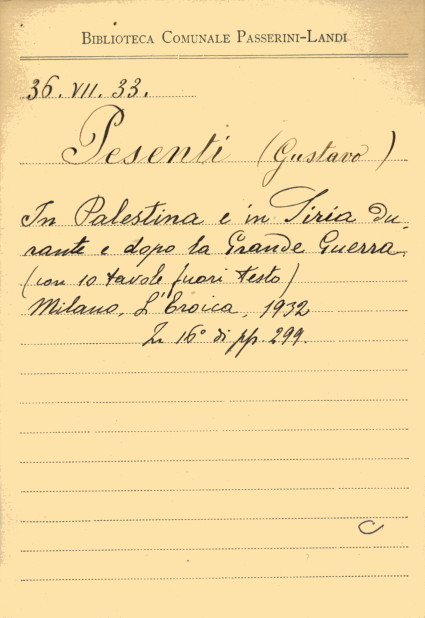 BIBLIOTECA COMUNALE PASSERINI-LANDI
36. VII. 33.
Pesenti (Gustavo)
In Palestina e in Siria du-
rante e dopo la Grande Guerra.
(con 10 tavole fuori testo)
Milano, L'Eroica, 1932
In 16° di pp. 299.
C